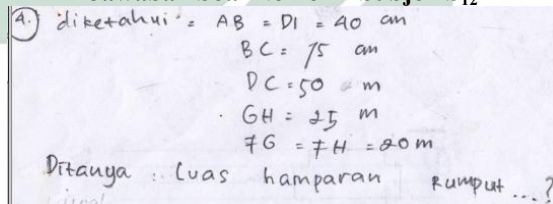 4. diketahui : AB = DI = 40 cm
BC = 75 cm
DC = 50 m
GH = 25 m
FG = FH = 20 m
Ditanya : Luas hamparan Rumput ...?